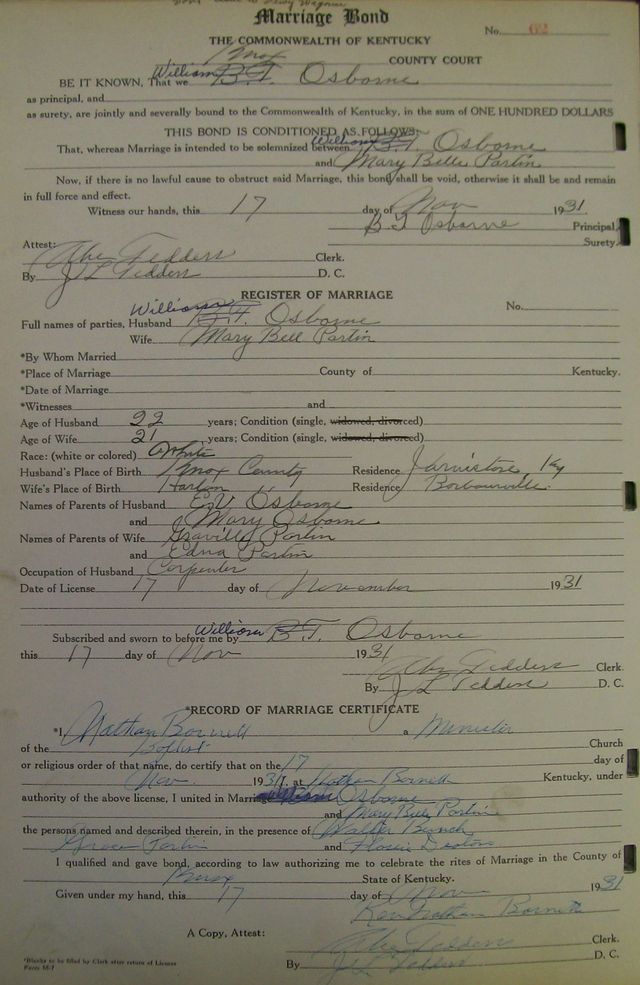 Marriage Bond
No. 62
THE COMMONWEALTH OF KENTUCKY
Knox COUNTY COURT
BE IT KNOWN, That we William B.T. Osborne
as principal, and
as surety, are jointly and severally bound to the Commonwealth of Kentucky, in the sum of ONE HUNDRED DOLLARS
THIS BOND IS CONDITIONED AS FOLLOWS:
That, whereas Marriage is intended to be solemnized between William B.T. Osborne
and Mary Belle Partin
Now, if there is no lawful cause to obstruct said Marriage, this bond shall be void, otherwise it shall be and remain
in full force and effect.
Witness our hands, this 17 day of Nov 1931
B T Osborne Principal,
Surety.
Attest:
Abe Fedders Clerk.
By J L Fedders D. C.
REGISTER OF MARRIAGE
No.
Full names of parties, Husband William B.T. Osborne
Wife Mary Bell Partin
*By Whom Married
*Place of Marriage County of Kentucky.
*Date of Marriage
*Witnesses and
Age of Husband 22 years; Condition (single, widowed, divorced)
Age of Wife 21 years; Condition (single, widowed, divorced)
Race: (white or colored) White
Husband's Place of Birth Knox County Residence Ky
Wife's Place of Birth Harlan Residence Barbourville
Names of Parents of Husband E V Osborne
and Mary Osborne
Names of Parents of Wife Partin
and Edna Partin
Occupation of Husband Carpenter
Date of License 17 day of November 1931
Subscribed and sworn to before me by William B.T. Osborne
this 17 day of Nov 1931
Abe Fedders Clerk.
By J L Fedders D. C.
*RECORD OF MARRIAGE CERTIFICATE
*I, Nathan a Minister
of the Church
or religious order of that name, do certify that on the 17 day of
Nov. 1931, at Nathan Kentucky, under
authority of the above license, I united in Marriage Osborne
and Mary Bell Partin
the persons named and described therein, in the presence of Walter
Grace Partin and
I qualified and gave bond, according to law authorizing me to celebrate the rites of Marriage in the County of
Knox State of Kentucky.
Given under my hand, this 17 day of Nov 1931
Rev Nathan
A Copy, Attest:
Abe Fedders Clerk.
By J L Fedders D. C.
*Blanks to be filled by Clerk after return of License
Form 16-7